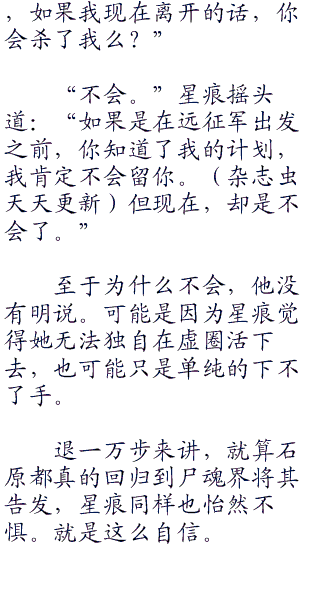 ，如果我现在离开的话，你
会杀了我么？”
“不会。”星痕摇头
道：“如果是在远征军出发
之前，你知道了我的计划，
我肯定不会留你。（杂志虫
天天更新）但现在，却是不
会了。”
至于为什么不会，他没
有明说。可能是因为星痕觉
得她无法独自在虚圈活下
去，也可能只是单纯的下不
了手。
退一万步来讲，就算石
原都真的回归到尸魂界将其
告发，星痕同样也怡然不
惧。就是这么自信。